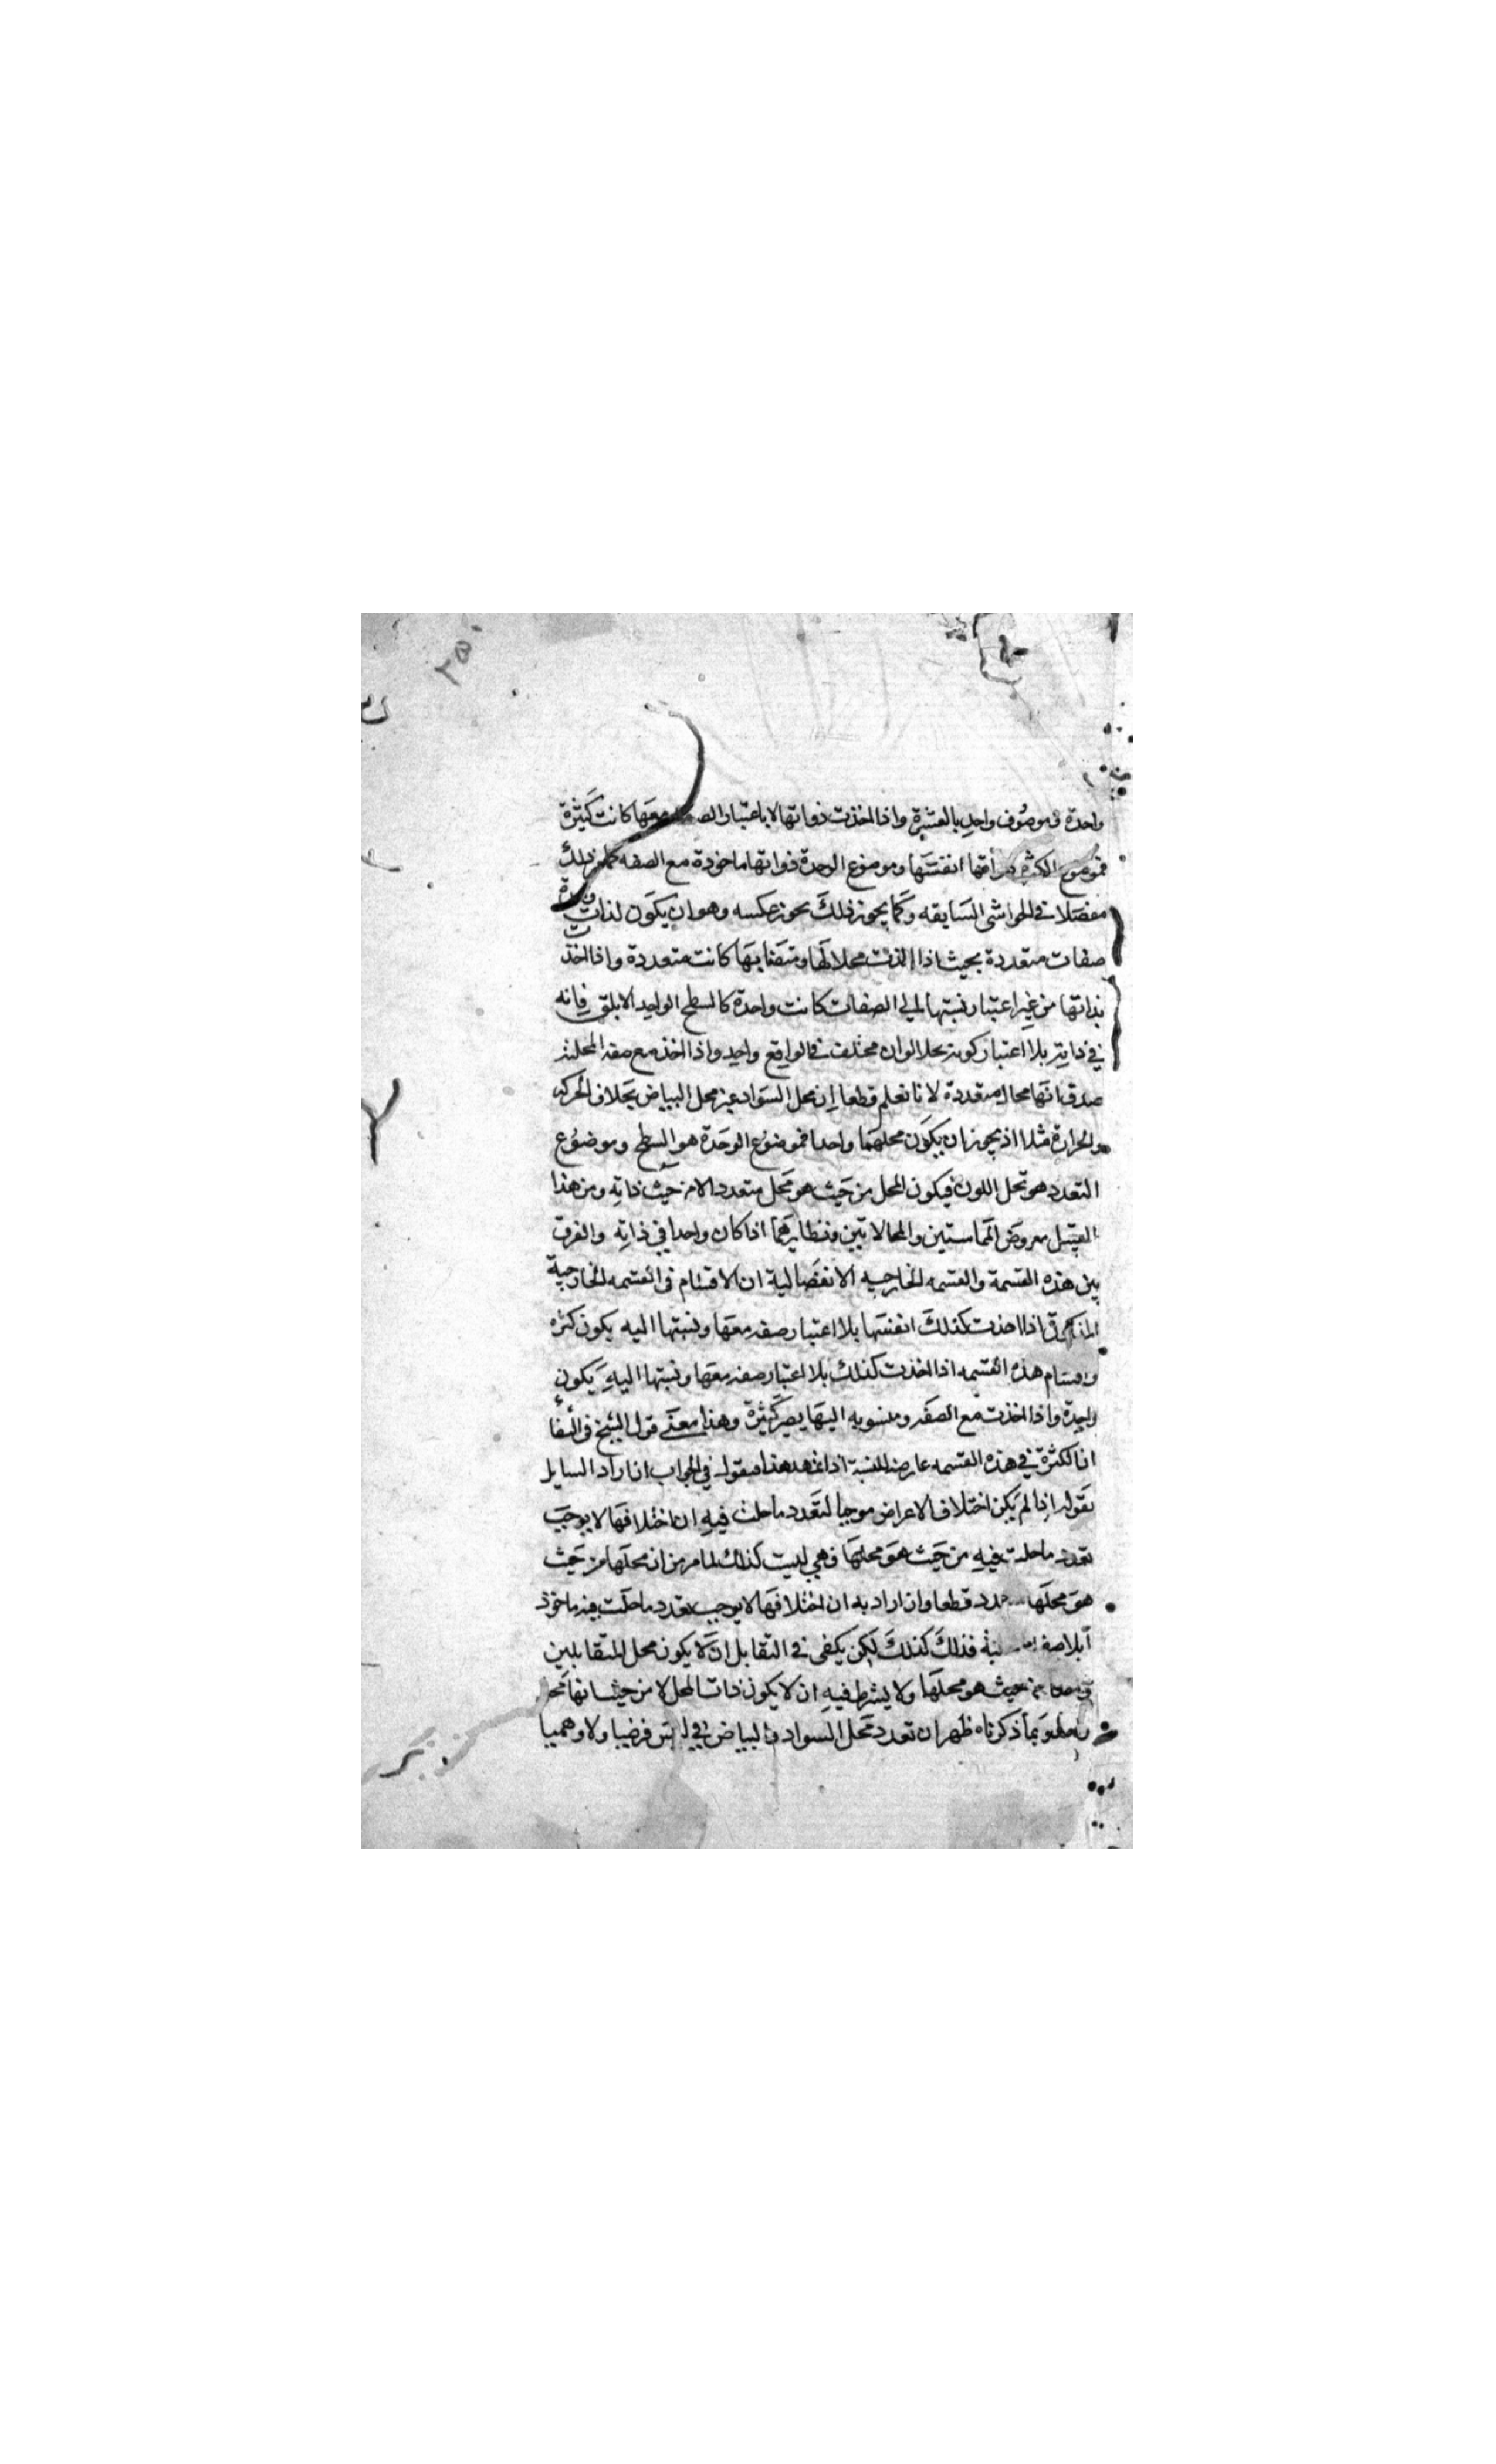 واحدة فموصوف واحد بالعشرة واذا اخذت ذواتها لا باعتبار معها كانت كثيرة
فموضوع الكثرة انفسها وموضوع الوحدة ذواتها ماخوذة مع الصفه ذلك
مفصلا في الحواشي السابقه وكما يجوز ذلك يجوز عكسه وهو ان يكون لذات
صفات متعددة بحيث اذا اخذت محلا لها ومتصفا بها كانت متعددة واذا اخذت
بذاتها من غير اعتبار نسبتها الى الصفات كانت واحدة كالسطح الواحد الابلق فانه
في ذاته بلا اعتبار كونه محلا لالوان مختلف في الواقع واحد واذا اخذ مع صفة المحلية
صدق انها محال متعددة لانا نعلم قطعا ان محل السواد غير محل البياض بخلاف الحركه
والحرارة مثلا اذ يجوز ان يكون محلهما واحدا فموضوع الوحدة هو السطح وموضوع
التعدد هو محل اللون فيكون المحل من حيث هو محل متعدد لا من حيث ذاته ومن هذا
القبيل معروض المماستين والمحاذاتين ونظايرهما اذا كان واحدا في ذاته والفرق
بين هذه القسمة والقسمه الخارجيه الانفصالية ان الاقسام في القسمه الخارجية
المذكورة اذا اخذت كذلك انفسها بلا اعتبار صفه معها ونسبتها اليه يكون كثره
واقسام هذه القسمه اذا اخذت كذلك بلا اعتبار صفه معها ونسبتها اليه يكون
واحدة واذا اخذت مع الصفه ومنسوبه اليها يصير كثيرة وهذا معنى قول الشيخ في الشفاء
ان الكثرة في هذه القسمه عارضه للنسبة اذا تمهد هذا فنقول في الجواب ان اراد السايل
بقوله اذا لم يكن اختلاف الاعراض موجبا لتعدد ما حلت فيه ان اختلافها لا يوجب
تعدد ما حلت فيه من حيث هو محلها فهي ليست كذلك لما مر من ان محلها من حيث
هو محلها متعدد قطعا وان اراد به ان اختلافها لا يوجب تعدد ما حلت فيه ماخوذ
بلا صفه فذلك كذلك لكن يكفي في التقابل ان لا يكون محل المتقابلين
من حيث هو محلها ولا يشرط فيه ان لا يكون ذات المحل لا من حيث انها محل
وبما ذكرناه ظهر ان تعدد محل السواد والبياض ليس فرضيا ولا وهميا